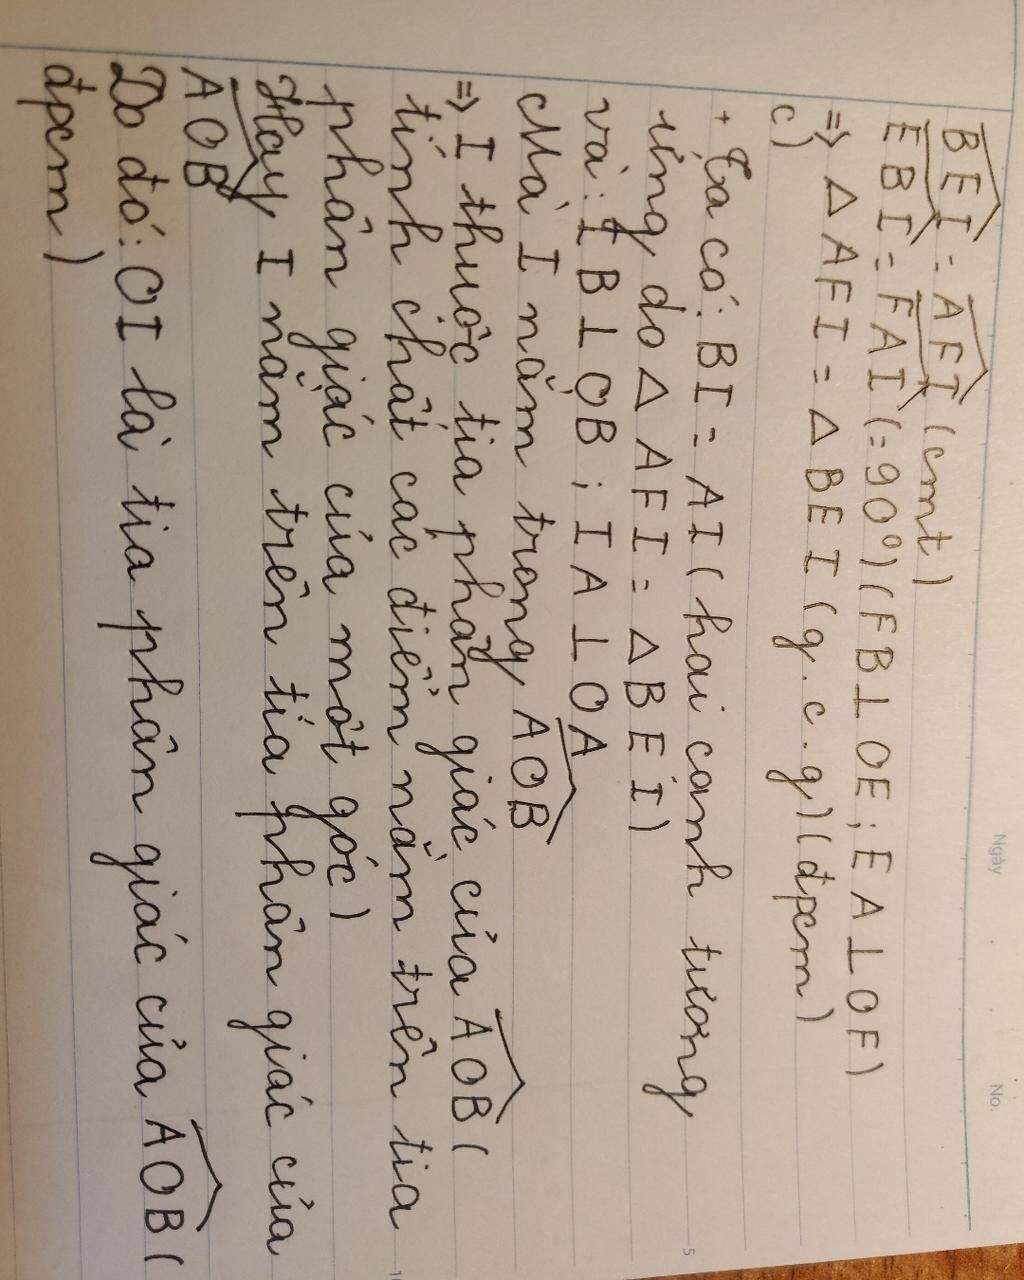 Ngày No.
BEI = AFI (cmt)
EBI = FAI (= 90⁰) (FB ⊥ OE ; EA ⊥ OF)
=> Δ AFI = Δ BEI (g.c.g) (đpcm)
c)
+ Ta có: BI = AI ( hai cạnh tương
ứng do Δ AFI = Δ BEI)
và: IB ⊥ OB ; IA ⊥ OA
Mà I nằm trong AOB
=> I thuộc tia phân giác của AOB (
tính chất các điểm nằm trên tia
phân giác của một góc)
Hay I nằm trên tia phân giác của
AOB
Do đó: OI là tia phân giác của AOB (
đpcm)
5